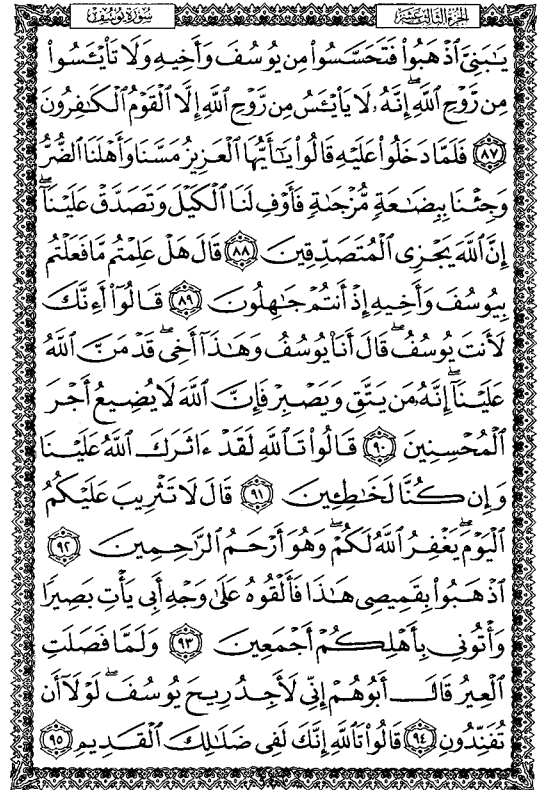 سُورَةُ يُوسُفَ الجُزءُ الثَّالِثَ عَشَرَ
يَٰبَنِىَّ ٱذْهَبُوا۟ فَتَحَسَّسُوا۟ مِن يُوسُفَ وَأَخِيهِ وَلَا تَا۟يْـَٔسُوا۟
مِن رَّوْحِ ٱللَّهِ ۖ إِنَّهُۥ لَا يَا۟يْـَٔسُ مِن رَّوْحِ ٱللَّهِ إِلَّا ٱلْقَوْمُ ٱلْكَٰفِرُونَ
٨٧ فَلَمَّا دَخَلُوا۟ عَلَيْهِ قَالُوا۟ يَٰٓأَيُّهَا ٱلْعَزِيزُ مَسَّنَا وَأَهْلَنَا ٱلضُّرُّ
وَجِئْنَا بِبِضَٰعَةٍ مُّزْجَىٰةٍ فَأَوْفِ لَنَا ٱلْكَيْلَ وَتَصَدَّقْ عَلَيْنَآ ۖ
إِنَّ ٱللَّهَ يَجْزِى ٱلْمُتَصَدِّقِينَ ٨٨ قَالَ هَلْ عَلِمْتُم مَّا فَعَلْتُم
بِيُوسُفَ وَأَخِيهِ إِذْ أَنتُمْ جَٰهِلُونَ ٨٩ قَالُوٓا۟ أَءِنَّكَ
لَأَنتَ يُوسُفُ ۖ قَالَ أَنَا۠ يُوسُفُ وَهَٰذَآ أَخِى ۖ قَدْ مَنَّ ٱللَّهُ
عَلَيْنَآ ۖ إِنَّهُۥ مَن يَتَّقِ وَيَصْبِرْ فَإِنَّ ٱللَّهَ لَا يُضِيعُ أَجْرَ
ٱلْمُحْسِنِينَ ٩٠ قَالُوا۟ تَٱللَّهِ لَقَدْ ءَاثَرَكَ ٱللَّهُ عَلَيْنَا
وَإِن كُنَّا لَخَٰطِـِٔينَ ٩١ قَالَ لَا تَثْرِيبَ عَلَيْكُمُ
ٱلْيَوْمَ ۖ يَغْفِرُ ٱللَّهُ لَكُمْ ۖ وَهُوَ أَرْحَمُ ٱلرَّٰحِمِينَ ٩٢
ٱذْهَبُوا۟ بِقَمِيصِى هَٰذَا فَأَلْقُوهُ عَلَىٰ وَجْهِ أَبِى يَأْتِ بَصِيرًا
وَأْتُونِى بِأَهْلِكُمْ أَجْمَعِينَ ٩٣ وَلَمَّا فَصَلَتِ
ٱلْعِيرُ قَالَ أَبُوهُمْ إِنِّى لَأَجِدُ رِيحَ يُوسُفَ ۖ لَوْلَآ أَن
تُفَنِّدُونِ ٩٤ قَالُوا۟ تَٱللَّهِ إِنَّكَ لَفِى ضَلَٰلِكَ ٱلْقَدِيمِ ٩٥